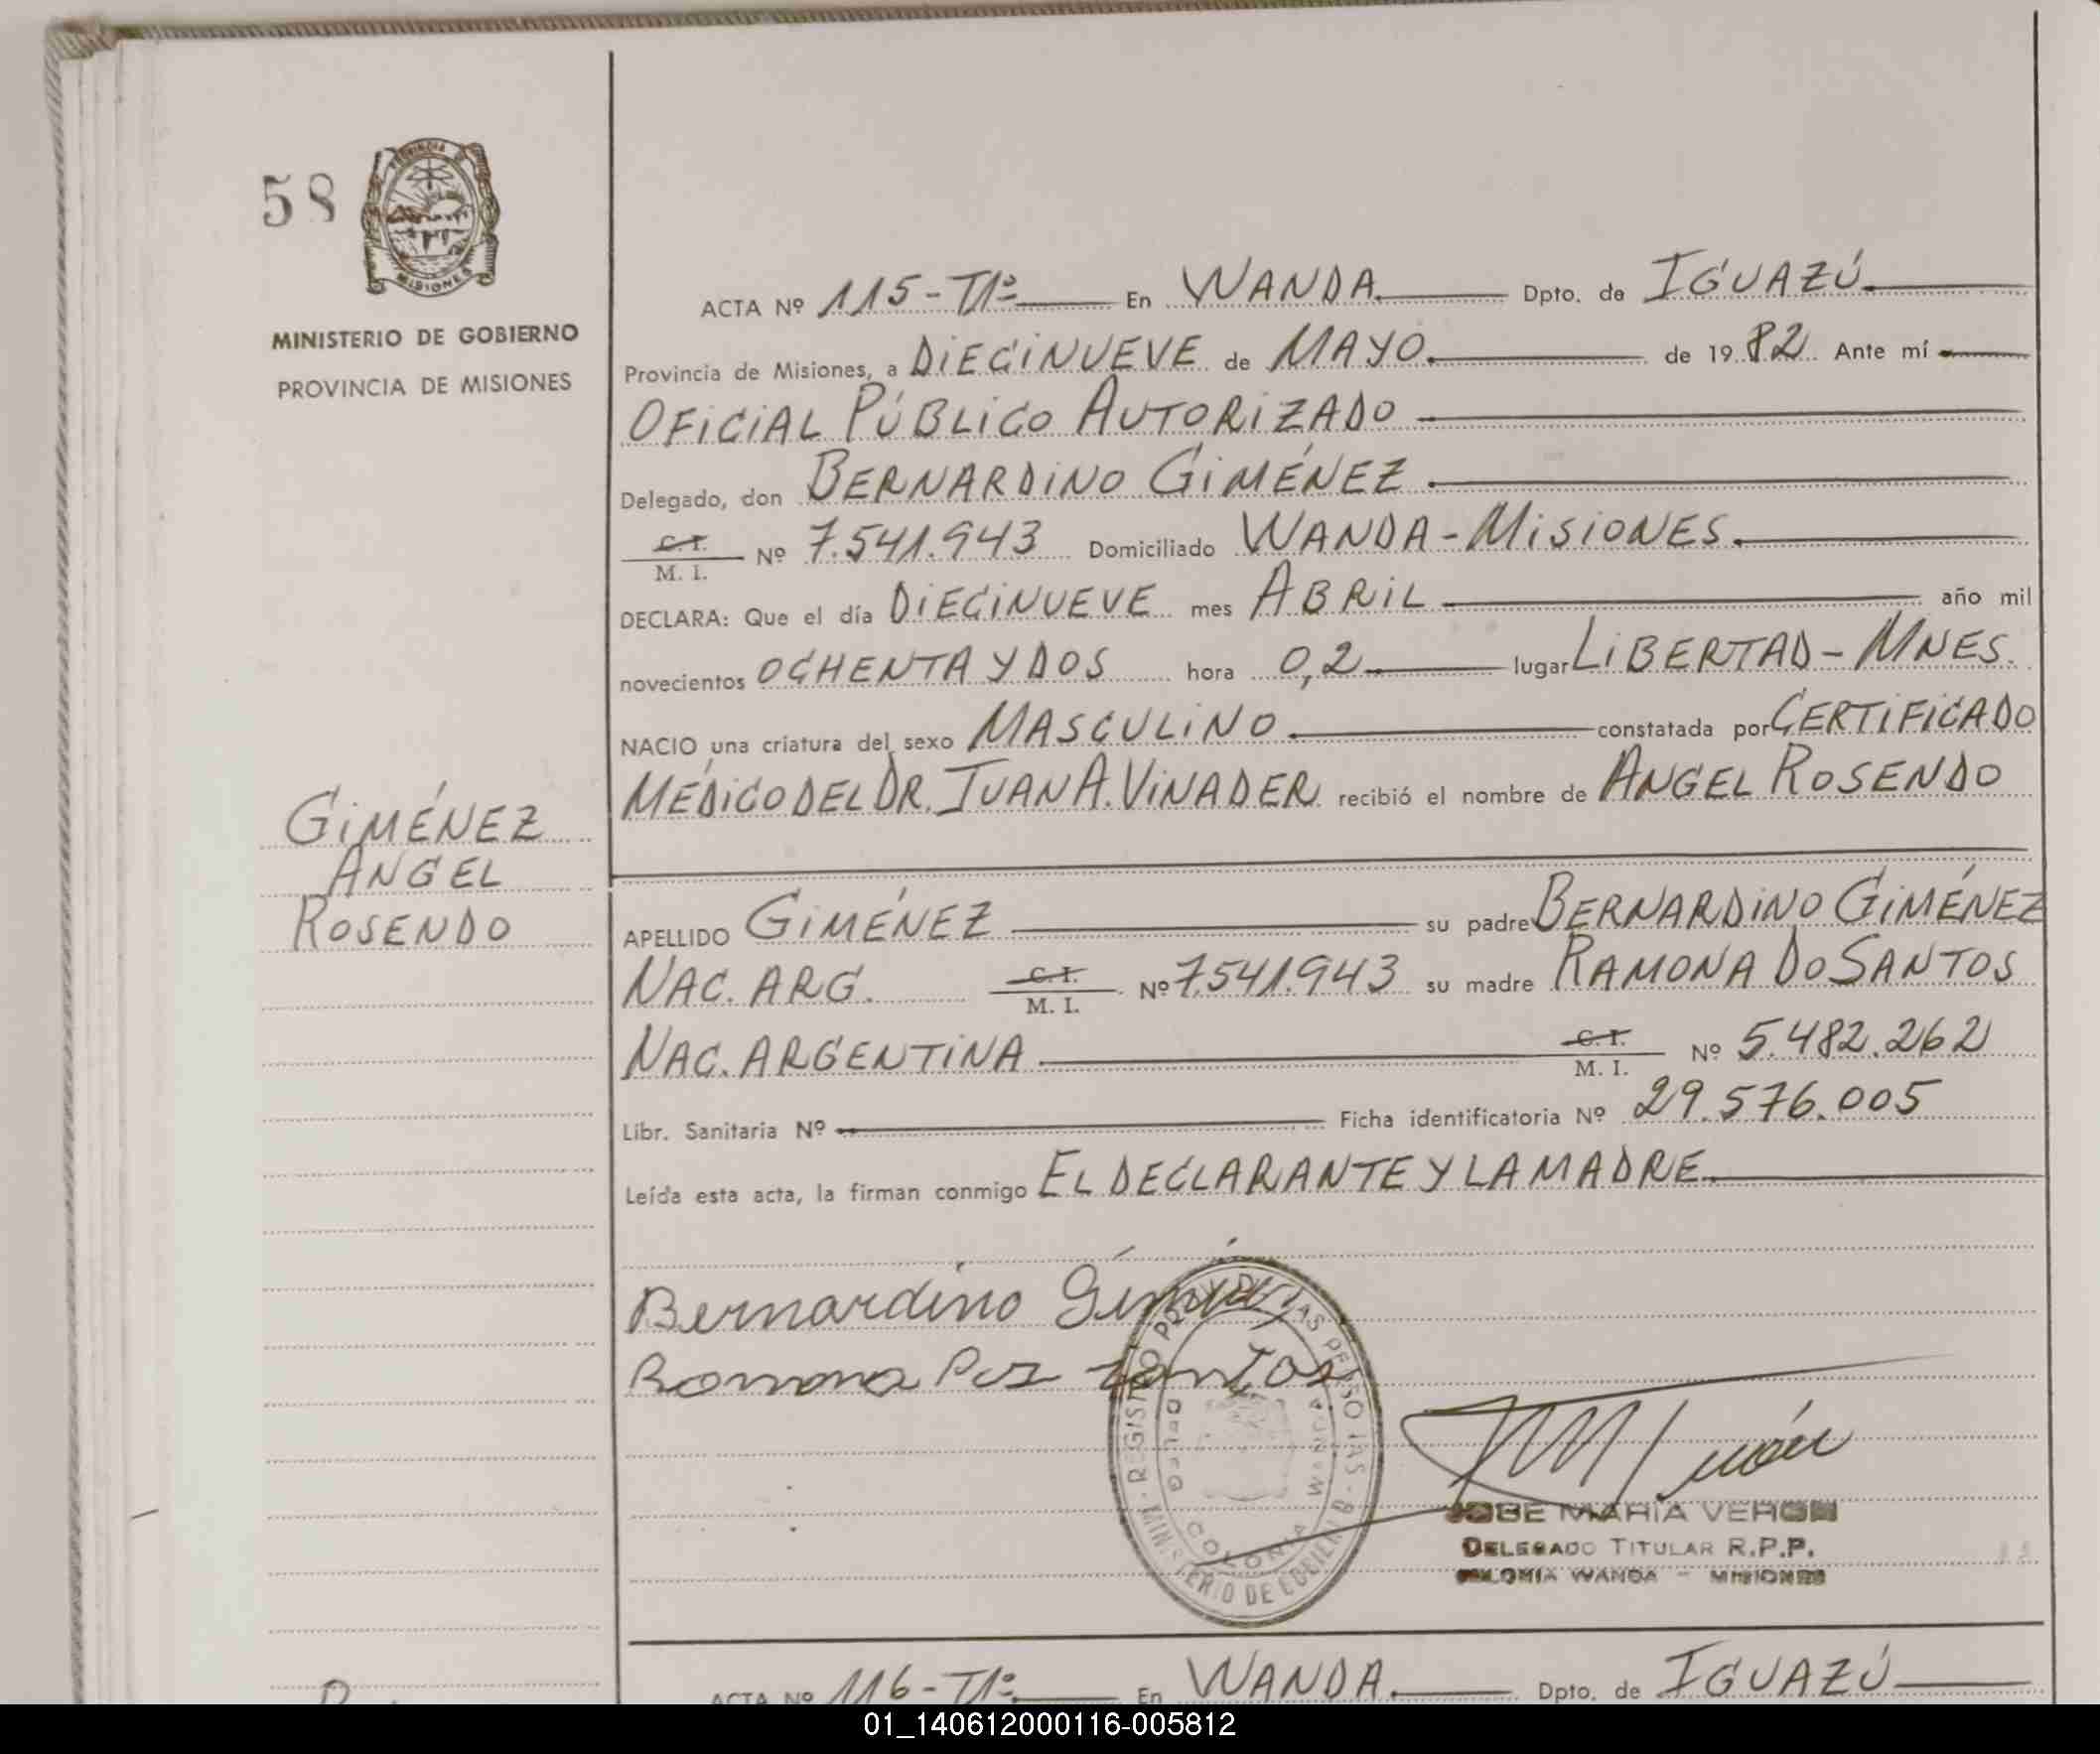 58
PROVINCIA D
MISIONES
MINISTERIO DE GOBIERNO
PROVINCIA DE MISIONES
ACTA Nº 115-Tº1º En WANDA. Dpto. de IGUAZÚ.
Provincia de Misiones, a DIECINUEVE de MAYO. de 1982 Ante mí
OFICIAL PÚBLICO AUTORIZADO
Delegado, don BERNARDINO GIMÉNEZ.
C.I. M. I. Nº 7.541.943 Domiciliado WANDA-MISIONES.
DECLARA: Que el día DIECINUEVE mes ABRIL año mil
novecientos OCHENTA Y DOS hora 0,2 lugar LIBERTAD-MNES.
NACIO una criatura del sexo MASCULINO. constatada por CERTIFICADO
MÉDICO DEL DR. JUAN A. VINADER recibió el nombre de ANGEL ROSENDO
GIMÉNEZ
ANGEL
ROSENDO
APELLIDO GIMÉNEZ su padre BERNARDINO GIMÉNEZ
NAC. ARG. C.I. M. I. Nº 7.541.943 su madre RAMONA DO SANTOS
NAC. ARGENTINA C.I. M. I. Nº 5.482.262
Libr. Sanitaria Nº Ficha identificatoria Nº 29.576.005
Leída esta acta, la firman conmigo EL DECLARANTE Y LA MADRE.
Bernardino Giménez
Ramona Dos Santos
REGISTRO PROV. DE LAS PERSONAS - MINISTERIO DE GOBIERNO
COLONIA WANDA
JOSE MARIA VERON
DELEGADO TITULAR R.P.P.
COLONIA WANDA - MISIONES
ACTA Nº 116-Tº1º En WANDA. Dpto. de IGUAZÚ
01_140612000116-005812